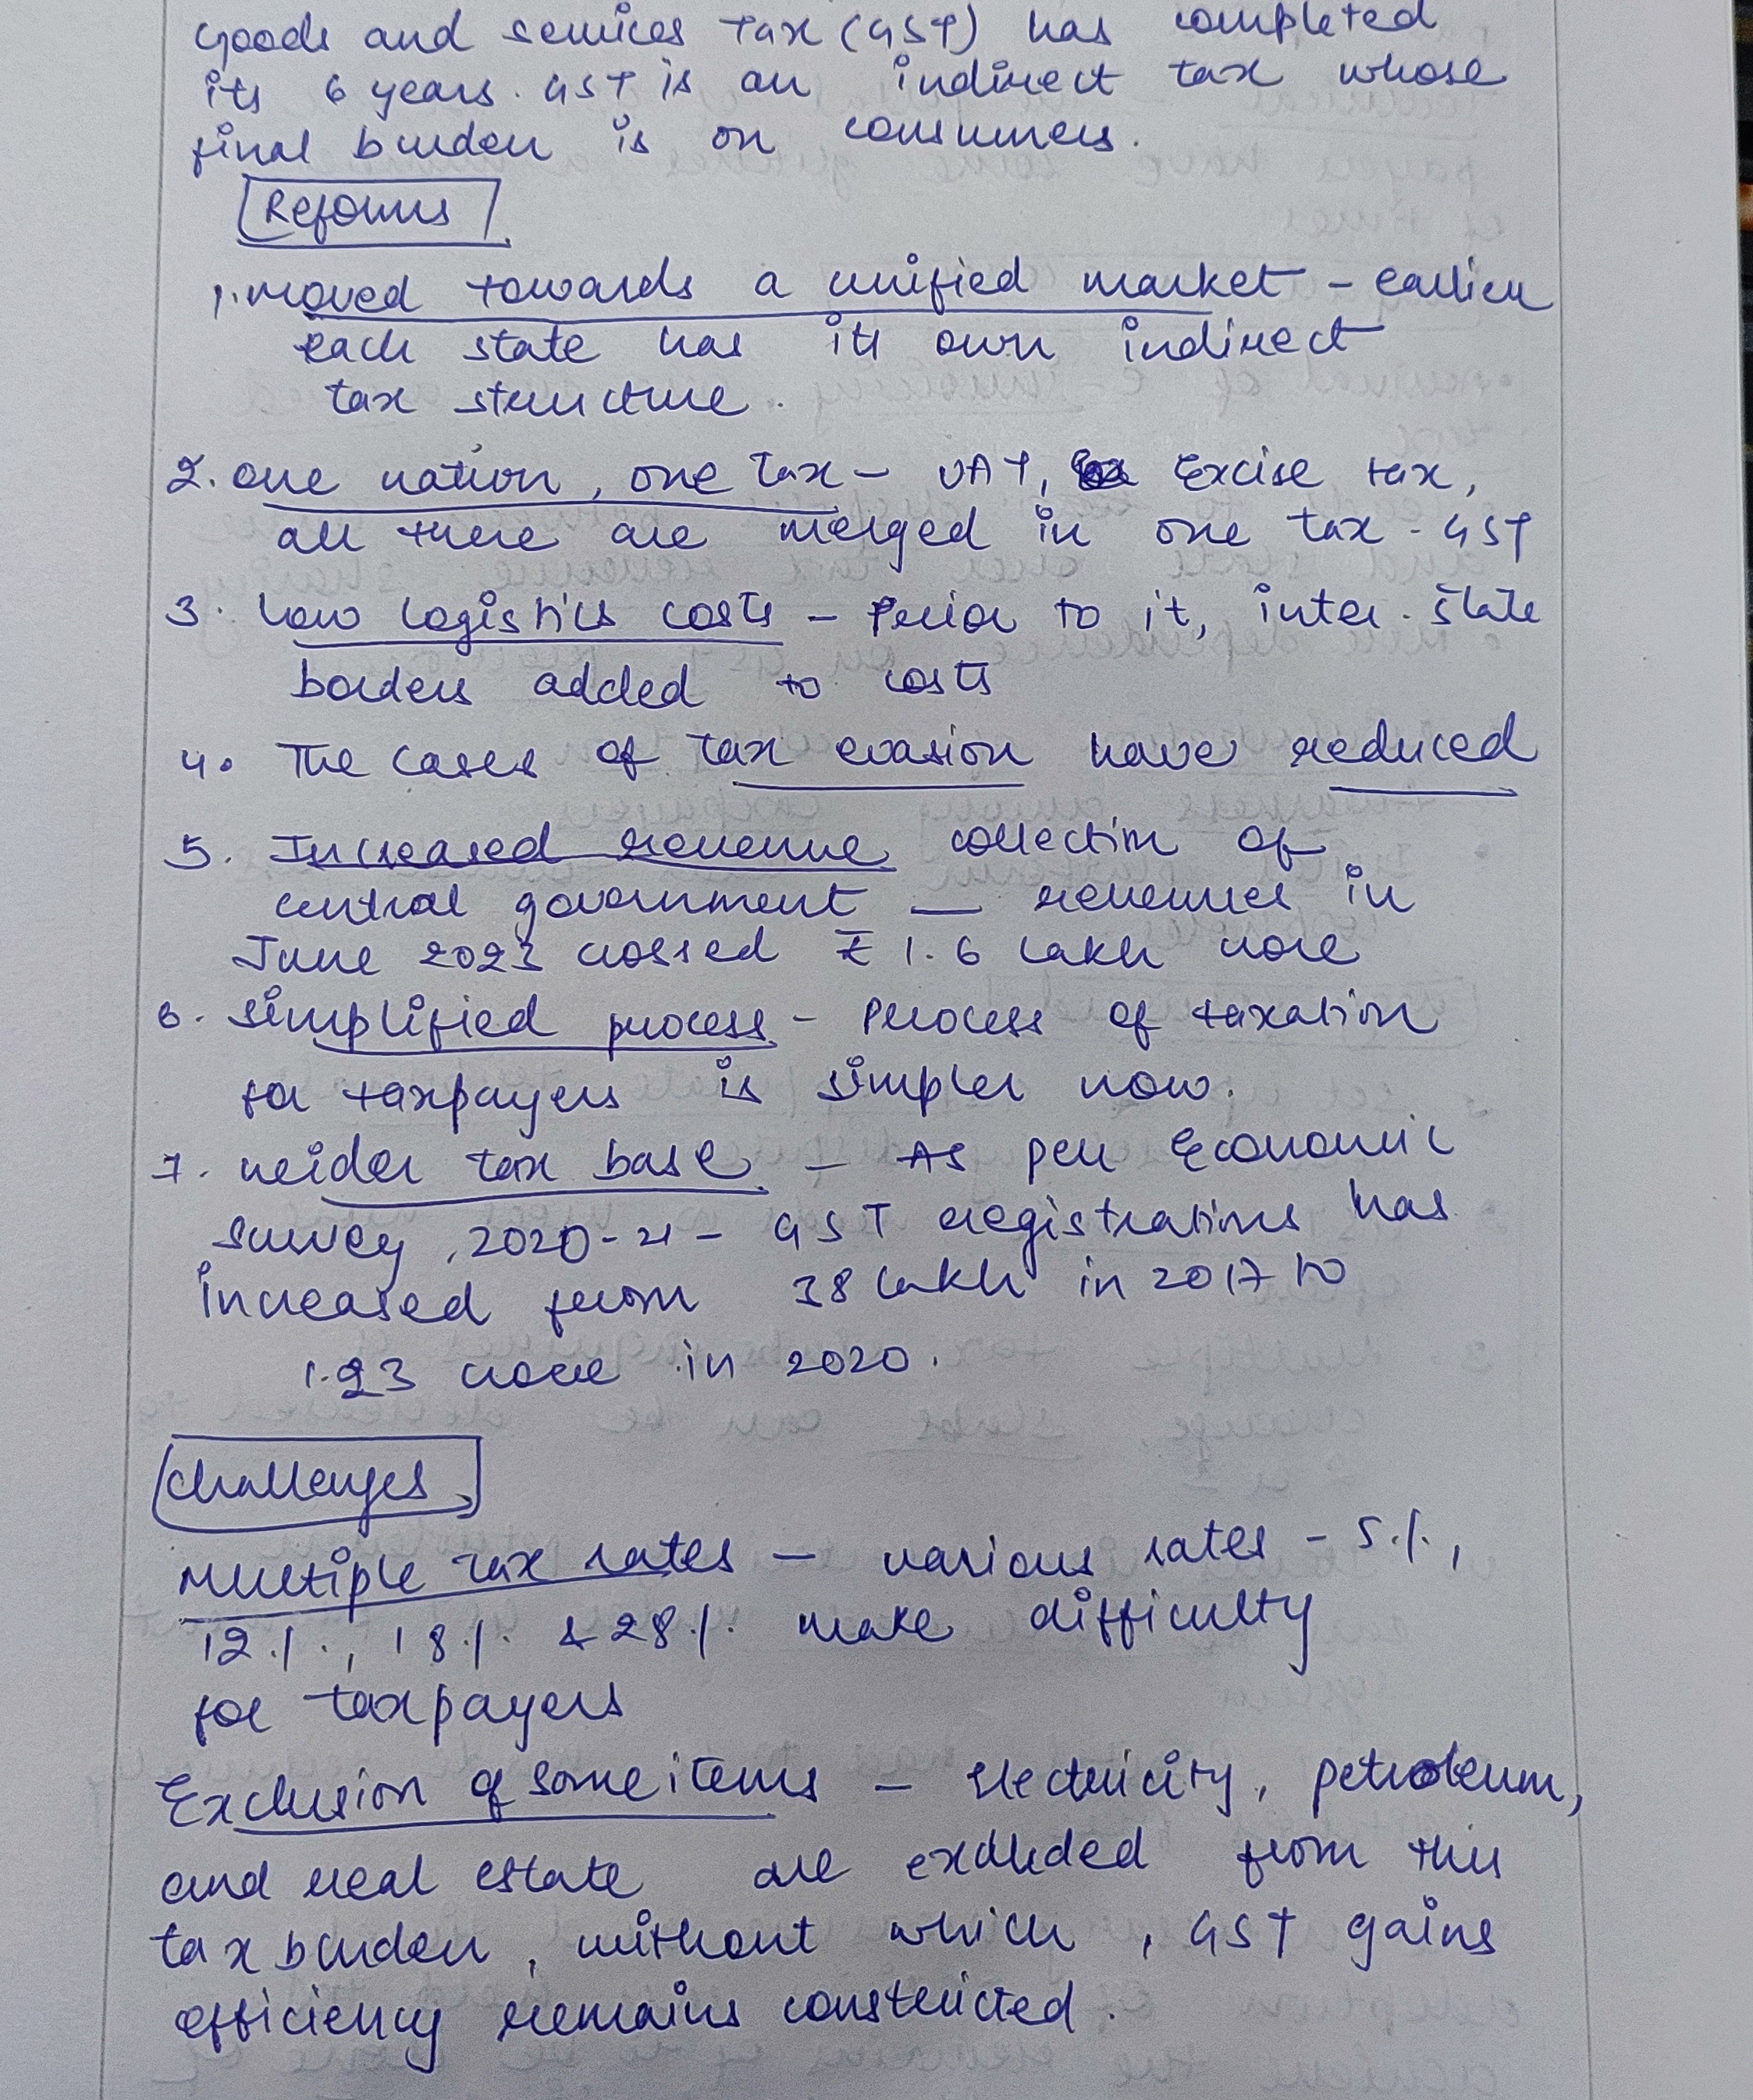 Goods and services Tax (GST) has completed
its 6 years. GST is an indirect tax whose
final burden is on consumers.
Reforms
1. Moved towards a unified market - earlier
each state has its own indirect
tax structure.
2. One nation, one Tax - VAT, Excise tax,
all there are merged in one tax - GST
3. Low logistics costs - Prior to it, inter-state
borders added to costs
4. The cases of tax evasion have reduced
5. Increased revenue collection of
central government — revenues in
June 2023 crossed ₹ 1.6 lakh crore
6. Simplified process - Process of taxation
for taxpayers is simpler now.
7. Weider tax base - As per Economic
Survey, 2020-21 - GST registrations has
increased from 38 lakh in 2017 to
1.23 crore in 2020.
Challenges
Multiple Tax rates - various rates - 5%,
12%, 18% & 28% make difficulty
for taxpayers
Exclusion of some items - Electricity, petroleum,
and real estate are excluded from this
tax burden, without which, GST gains
efficiency remains constricted.